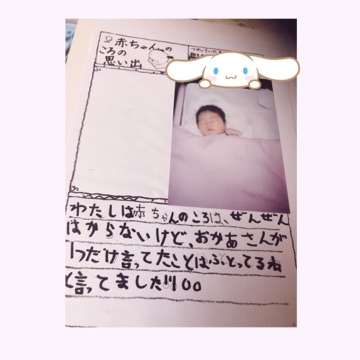 赤ちゃんの
ころの
思い出
わたしは赤ちゃんのころは、ぜんぜん
はからないけど、おかあさんが
1つだけ言ってたことはふとってるね
と言てました!!!